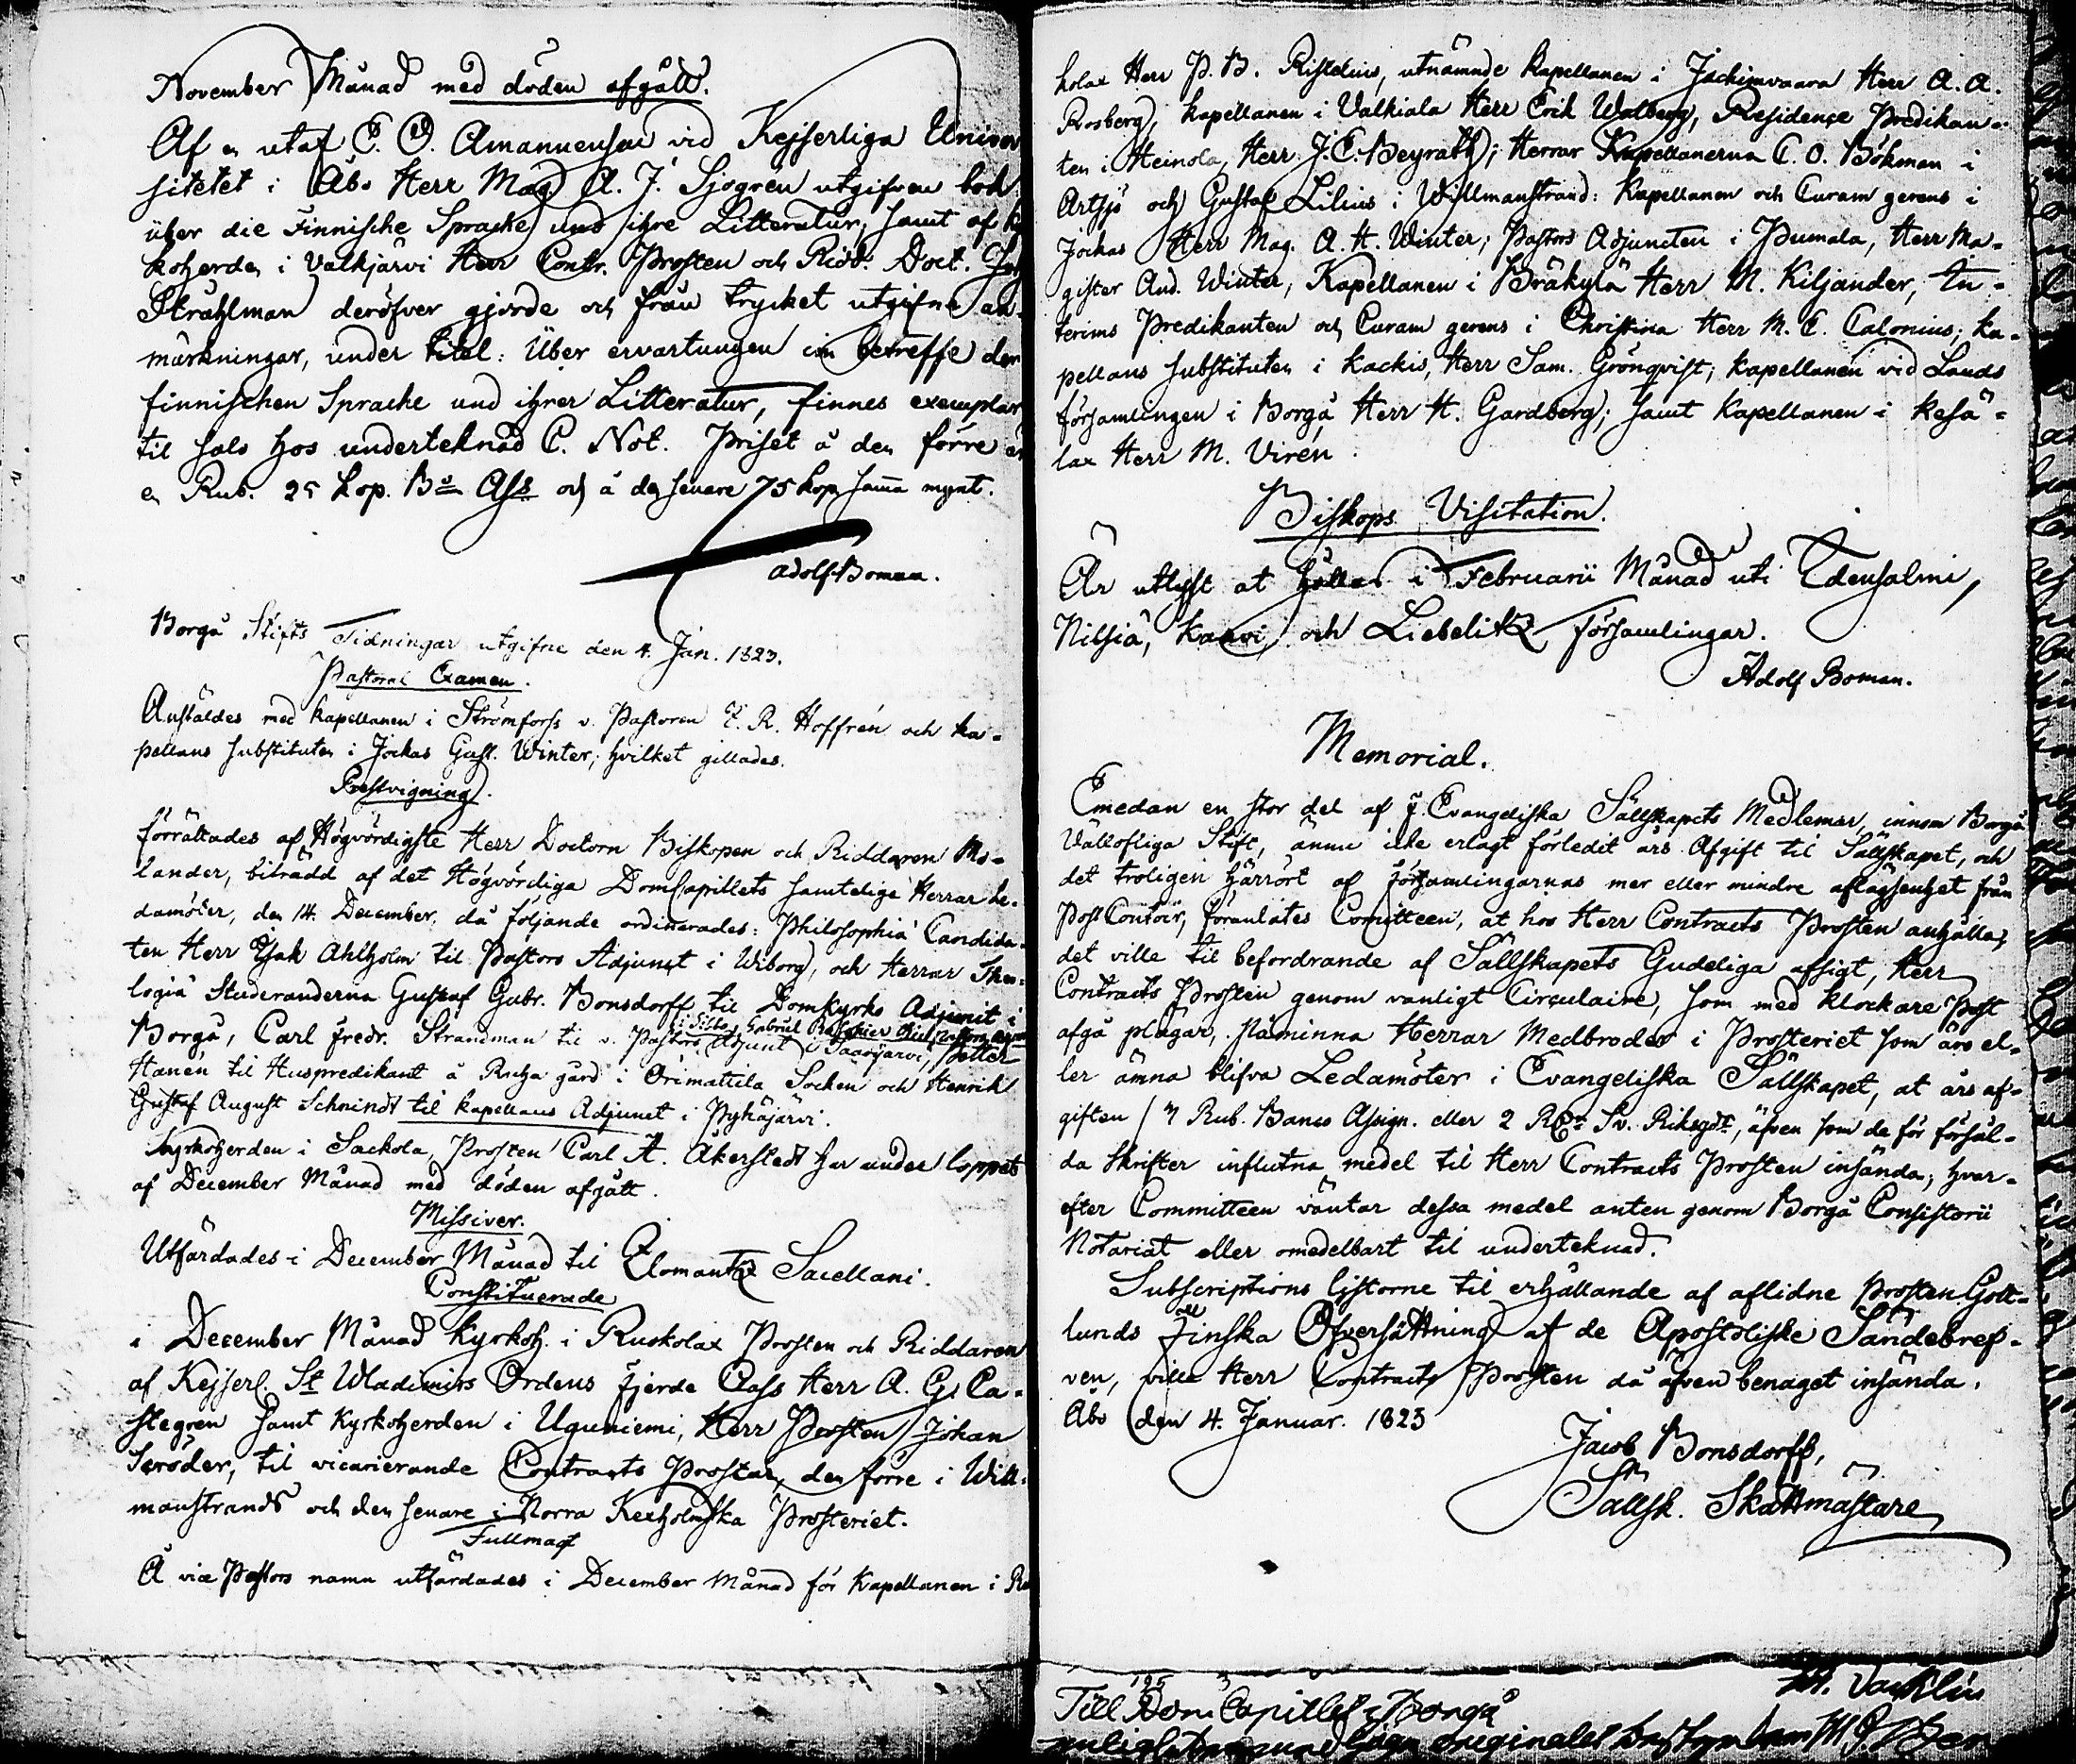 November Månad med döden afgått.
Af en utaf E. O. Amanuensen vid Kejserliga Univer
sitetet i Åbo Herr Mag A. J. Sjögren utgifven bok
über die Finnische Sprache und ihre Litteratur, samt af
koherden i Valkjärvi Herr Contr. Prosten och Ridd. Doct.
Stråhlman deröfver gjorde och från trycket utgifne an-
märkningar, under titel: Über ervartungen in betreffe der
finnischen Sprache und ihrer Litteratur, finnes exemplar
til salo hos underteknad C. Not. Priset å den förre
en Rub. 25 kop. Bo Ass och å den senare 75 kop samma mynt.
Adolf Boman.
Borgå Stifts Tidningar utgifne den 4. Jan. 1823.
Pastoral Examen.
Anstäldes med kapellanen i Strömfors v. Pastoren E. R. Hoffrén och ka-
pellans substituten i Jockas Gust. Winter; hvilket gillades.
Prestvigning.
förrättades af Högvördigste Herr Doctorn Biskopen och Riddaren Mo-
lander, biträdd af det Högvördiga DomCapitlets samtelige Herrar Le-
damöter, den 14. December, då följande ordinerades: Philosophiä Candida-
ten Herr Isak Ahlholm til Pastors Adjunct i Wiborg, och Herrar Theo-
logiä Studeranderna Gustaf Gabr. Bonsdorff til Domkyrko Adjunct i
Borgå, Carl Fredr. Strandman til v. Pastors Adjunct i Saarijärvi, Petter
Hanén til Huspredikant å Ruha gård i Orimattila Socken och Henrik
Gustaf August Schmindt til kapellans Adjunct i Pyhäjärvi.
Kyrkoherden i Sackola, Prosten Carl A. Åkerstedt har under loppet
af December Månad med döden afgått.
Missiver.
Utfärdades i December Månad til Ilomantz Sacellani.
Constituerade
i December Månad kyrkoh. i Ruokolax Prosten och Riddaren
af Kejserl. St Wladimirs Ordens fjerde Class Herr A. G. Ca-
stegren samt kyrkoherden i Uguniemi, Herr Prosten Johan
Seröder, til vicarierande Contracts Prostar, den förre i Will-
manstrands och den senare i Norra Kexholmska Prosteriet.
Fullmagt
Å vice Pastors namn utfärdades i December Månad för Kapellanen i
kolax Herr P. B. Ristelius, utnämnde kapellanen i Jachimvaara Herr A. A.
Rosberg, kapellanen i Valkiala Herr Erik Walberg, Residence Predikan-
ten i Heinola, Herr J. C. Beyrath; Herrar Kapellanerna C. O. Bökman i
Artsjö och Gustaf Lilius i Willmanstrand: Kapellanen och Curam gerens i
Jockas Herr Mag. A. H. Winter; Pastors Adjuncten i Pumala, Herr Ma-
gister And. Winter, Kapellanen i Bräkylä Herr M. Kiljander, In-
terims Predikanten och Curam gerens i Christina Herr M. C. Calonius; ka-
pellans substituten i Kackis, Herr Sam. Grönqvist; kapellanen vid Lands
församlingen i Borgå Herr H. Gardberg; samt Kapellanen i Kesä-
lax Herr M. Virén
Biskops Visitation.
Är utlyst at hållas i Februarii Månad uti Idensalmi,
Nilsiä, Kaavi och Liebelitz församlingar.
Adolf Boman.
Memorial.
Emedan en stor del af f. Evangeliska Sällskapets Medlemar, innom Borgå
Vällofliga Stift, ännu icke erlagt förledit års Afgift til Sällskapet, och
det troligen härrört af församlingarnas mer eller mindre aflägsenhet från
PostContoir, föranlåtes Comitteen, at hos Herr Contracts Prosten anhålla,
det ville til befordrande af Sällskapets Gudeliga afsigt, Herr
Contracts Prosten genom vanligt Circulaire, som med klockare Post
afgå plägar, påminna Herrar Medbroder i Prosteriet som äro el-
ler ämna blifva Ledamöter i Evangeliska Sällskapet, at års af-
giften / 7 Rub. Banco Assign. eller 2 Rd Sv. Riksgds, äfven som de för försål-
da Skrifter influtna medel til Herr Contracts Prosten insända; hvar-
efter Committeen väntar dessa medel anten genom Borgå Consistorii
Notariat eller omedelbart til underteknad.
Subscriptions listorne til erhållande af aflidne Prosten Gott-
lunds finska Öfversättning af de Apostoliske Sändebref-
ven, ville Herr Contracts Prosten då äfven benäget insända.
Åbo den 4. Januar. 1823
Jacob Bonsdorff,
Sällsk. Skattmästare
Till DomCapitlet i Borgå